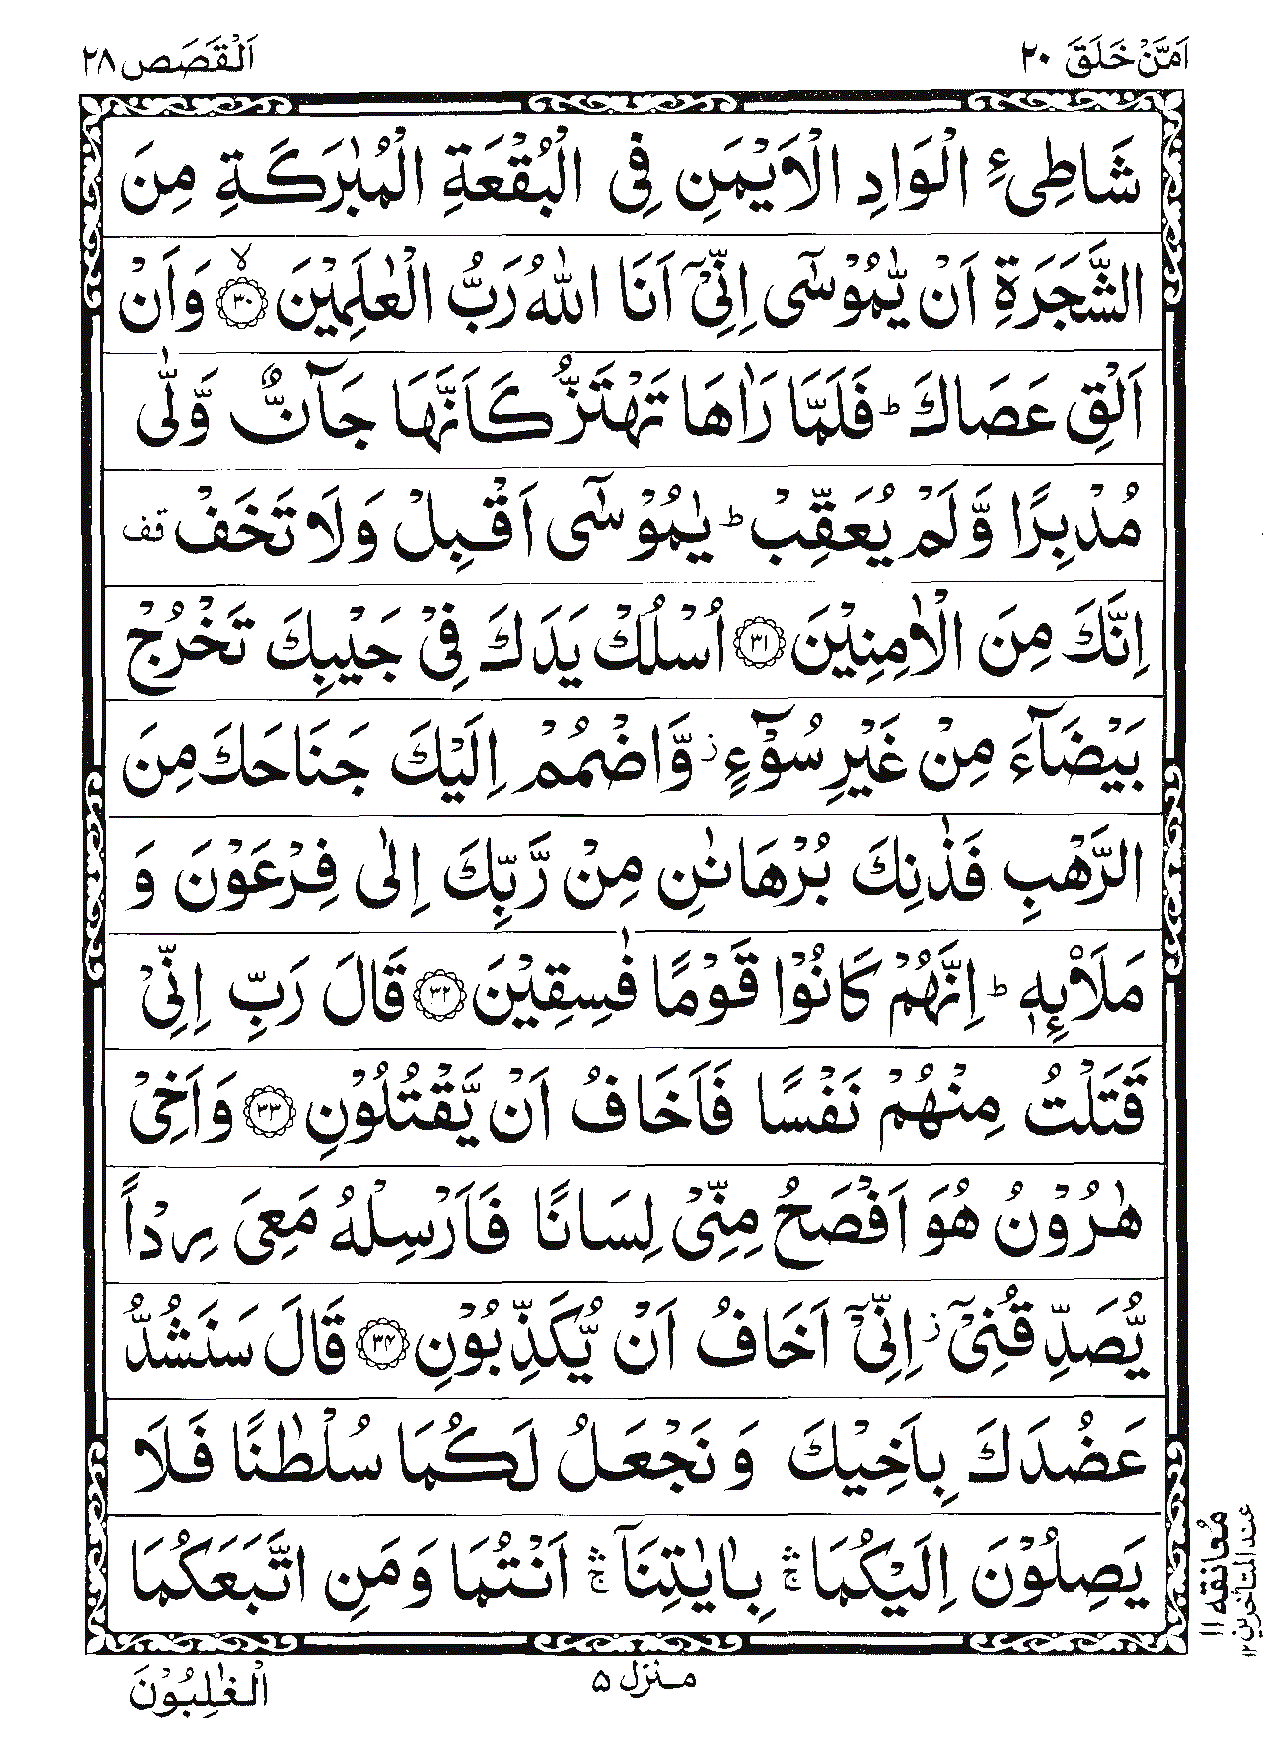 اَمَّنْ خَلَقَ ٢٠
اَلْقَصَص ٢٨
شَاطِیءِ الْوَادِ الْاَيْمَنِ فِی الْبُقْعَةِ الْمُبٰرَكَةِ مِنَ
الشَّجَرَةِ اَنْ يّٰمُوْسٰۤى اِنِّیْۤ اَنَا اللّٰهُ رَبُّ الْعٰلَمِيْنَ ۙ﴿٣٠﴾ وَاَنْ
اَلْقِ عَصَاكَ ؕ فَلَمَّا رَاٰهَا تَهْتَزُّ كَاَنَّهَا جَآنٌّ وَّلّٰى
مُدْبِرًا وَّلَمْ يُعَقِّبْ ؕ يٰمُوْسٰۤى اَقْبِلْ وَلَا تَخَفْ قف
اِنَّكَ مِنَ الْاٰمِنِيْنَ ﴿٣١﴾ اُسْلُكْ يَدَكَ فِیْ جَيْبِكَ تَخْرُجْ
بَيْضَآءَ مِنْ غَيْرِ سُوْٓءٍ ز وَّاضْمُمْ اِلَيْكَ جَنَاحَكَ مِنَ
الرَّهْبِ فَذٰنِكَ بُرْهَانٰنِ مِنْ رَّبِّكَ اِلٰى فِرْعَوْنَ وَ
مَلَا۟ئِهٖ ؕ اِنَّهُمْ كَانُوْا قَوْمًا فٰسِقِيْنَ ﴿٣٢﴾ قَالَ رَبِّ اِنِّیْ
قَتَلْتُ مِنْهُمْ نَفْسًا فَاَخَافُ اَنْ يَّقْتُلُوْنِ ﴿٣٣﴾ وَاَخِیْ
هٰرُوْنُ هُوَ اَفْصَحُ مِنِّیْ لِسَانًا فَاَرْسِلْهُ مَعِیَ رِدْاً
يُّصَدِّقُنِیْۤ ز اِنِّیْۤ اَخَافُ اَنْ يُّكَذِّبُوْنِ ﴿٣٤﴾ قَالَ سَنَشُدُّ
عَضُدَكَ بِاَخِيْكَ وَ نَجْعَلُ لَكُمَا سُلْطٰنًا فَلَا
يَصِلُوْنَ اِلَيْكُمَا ۛۚ بِاٰيٰتِنَاۤ ۛۚ اَنْتُمَا وَمَنِ اتَّبَعَكُمَا
مُعانقه ١١
عند المتأخرين ١٢
منزل ٥
الْغٰلِبُوْنَ